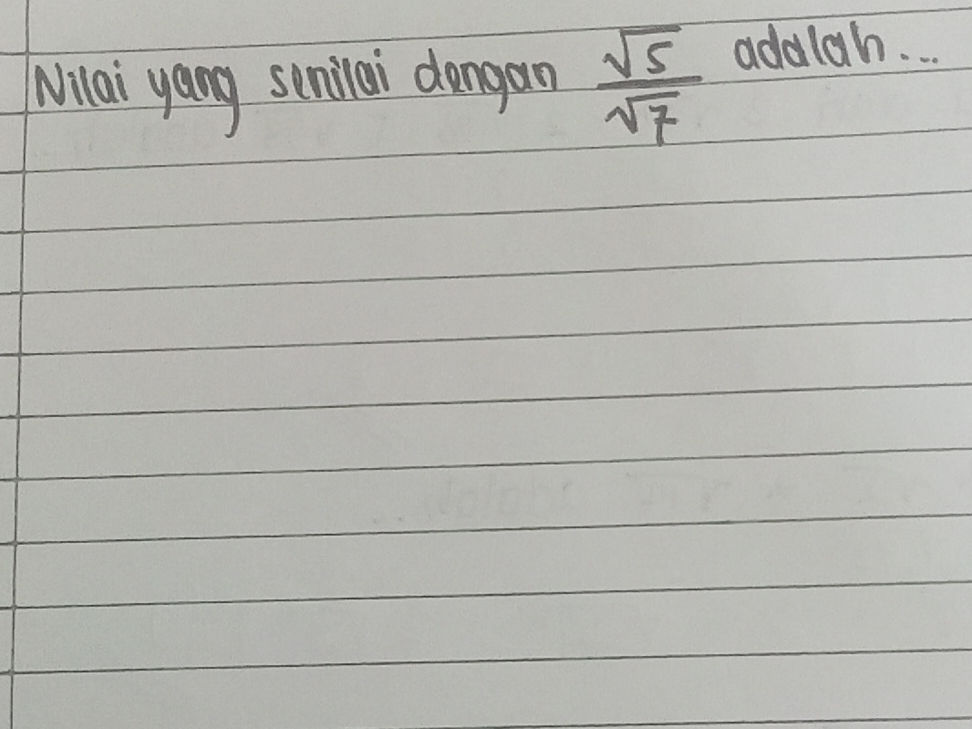 Nilai yang senilai dengan √5/√7 adalah...